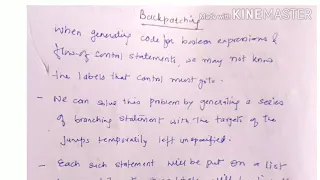 Backpatching
Made with KINEMASTER
When generating code for boolean expressions &
flow of control statements, we may not know
the labels that control must goto.
- We can solve this problem by generating a series
of branching statement with the targets of the
jumps temporarily left unspecified.
- Each such statement will be put on a list